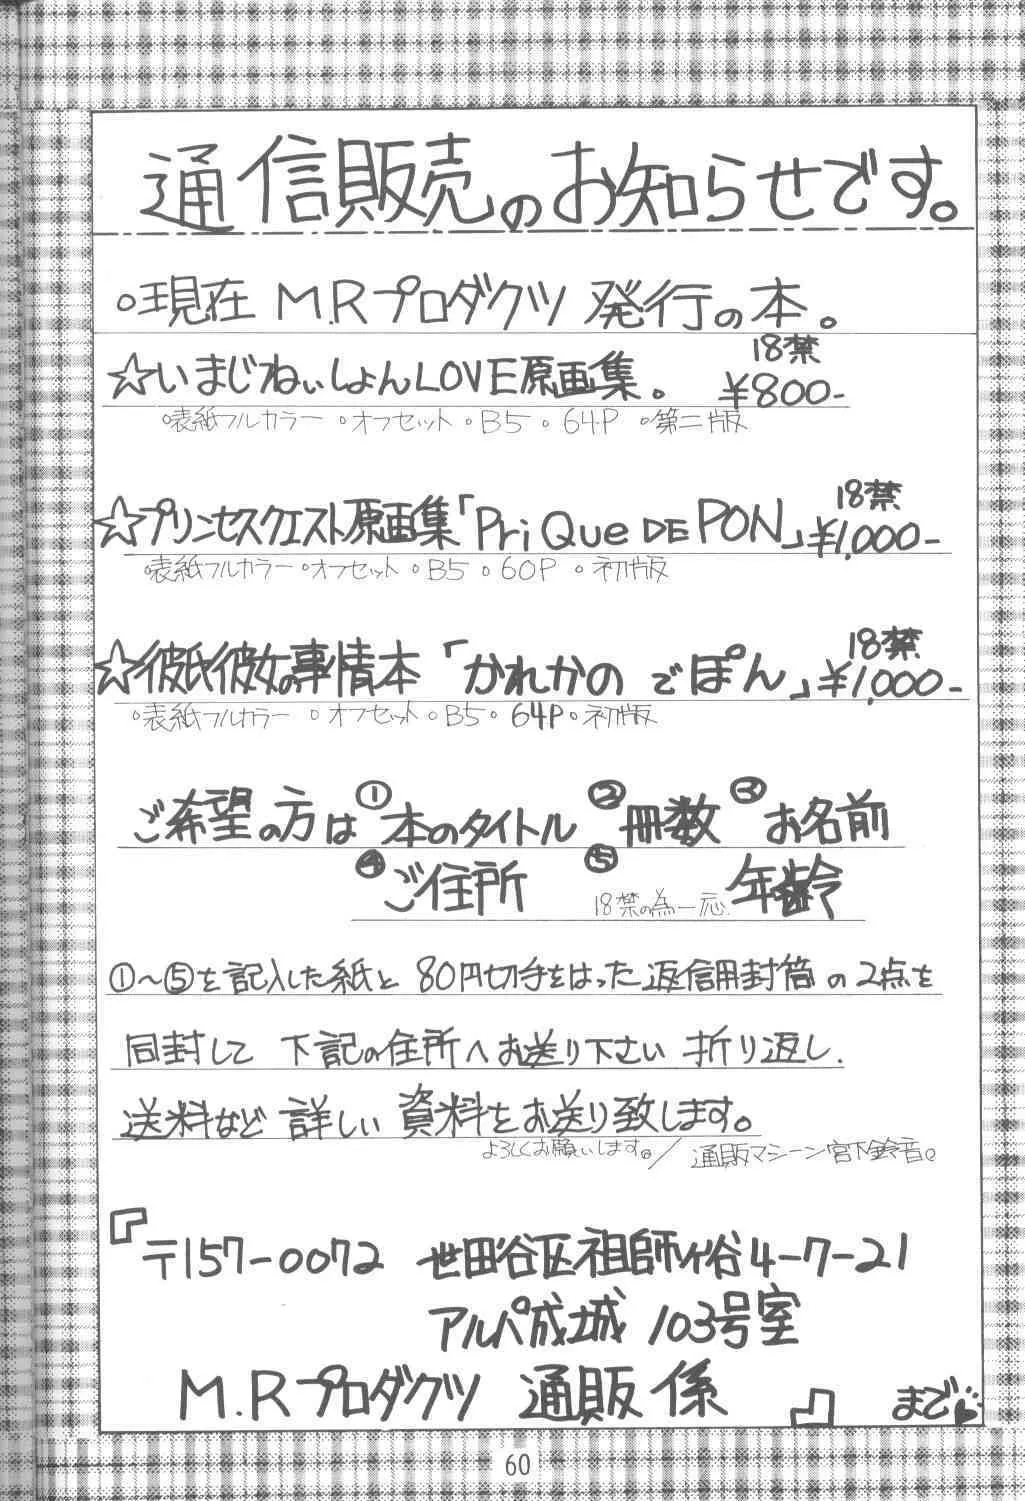 通信販売のお知らせです。
○現在 M.Rプロダクツ 発行の本。
18禁
☆いまじねぃしょんLOVE原画集。 ¥800-
○表紙フルカラー ○オフセット ○B5 ○64P ○第二版
18禁
☆プリンセスクエスト原画集「Pri Que DE PON」¥1,000-
○表紙フルカラー ○オフセット ○B5 ○60P ○初版
18禁
☆彼氏彼女の事情本「かれかの でぽん」¥1,000-
○表紙フルカラー ○オフセット ○B5 ○64P ○初版
ご希望の方は ①本のタイトル ②冊数 ③お名前
④ご住所 ⑤18禁の為一応.年齢
①〜⑤を記入した紙と 80円切手をはった返信用封筒の2点を
同封して 下記の住所へお送り下さい 折り返し.
送料など 詳しい 資料をお送り致します。
よろしくお願いします。/ 通販マシーン宮下鈴音。
『〒157-0072 世田谷区祖師ヶ谷4-7-21
アルパ成城 103号室
M.Rプロダクツ 通販係』まで♥
60